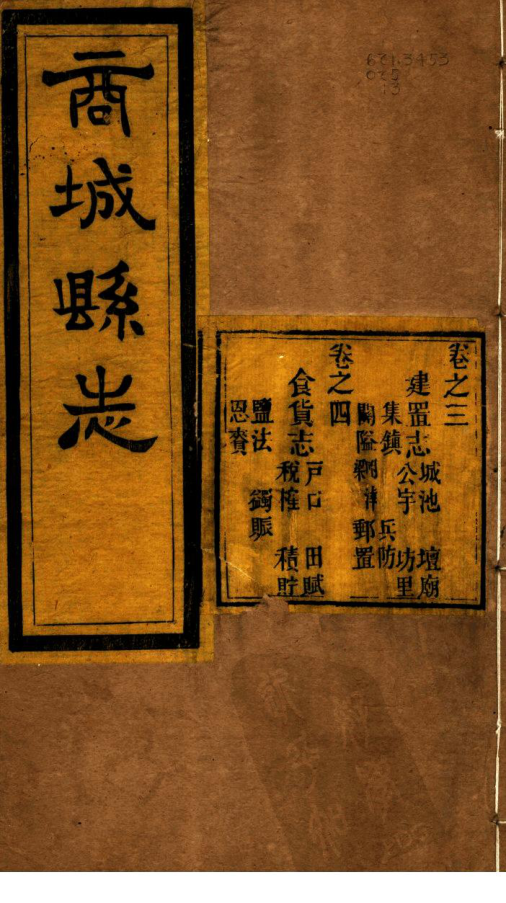 商城縣志
621.3453
025
13
卷之三
建置志 城池 壇廟
公宇 坊里
集鎮 兵防
關隘 津 郵置
卷之四
食貨志 戶口 田賦
稅榷 積貯
鹽法 蠲賑
恩賚